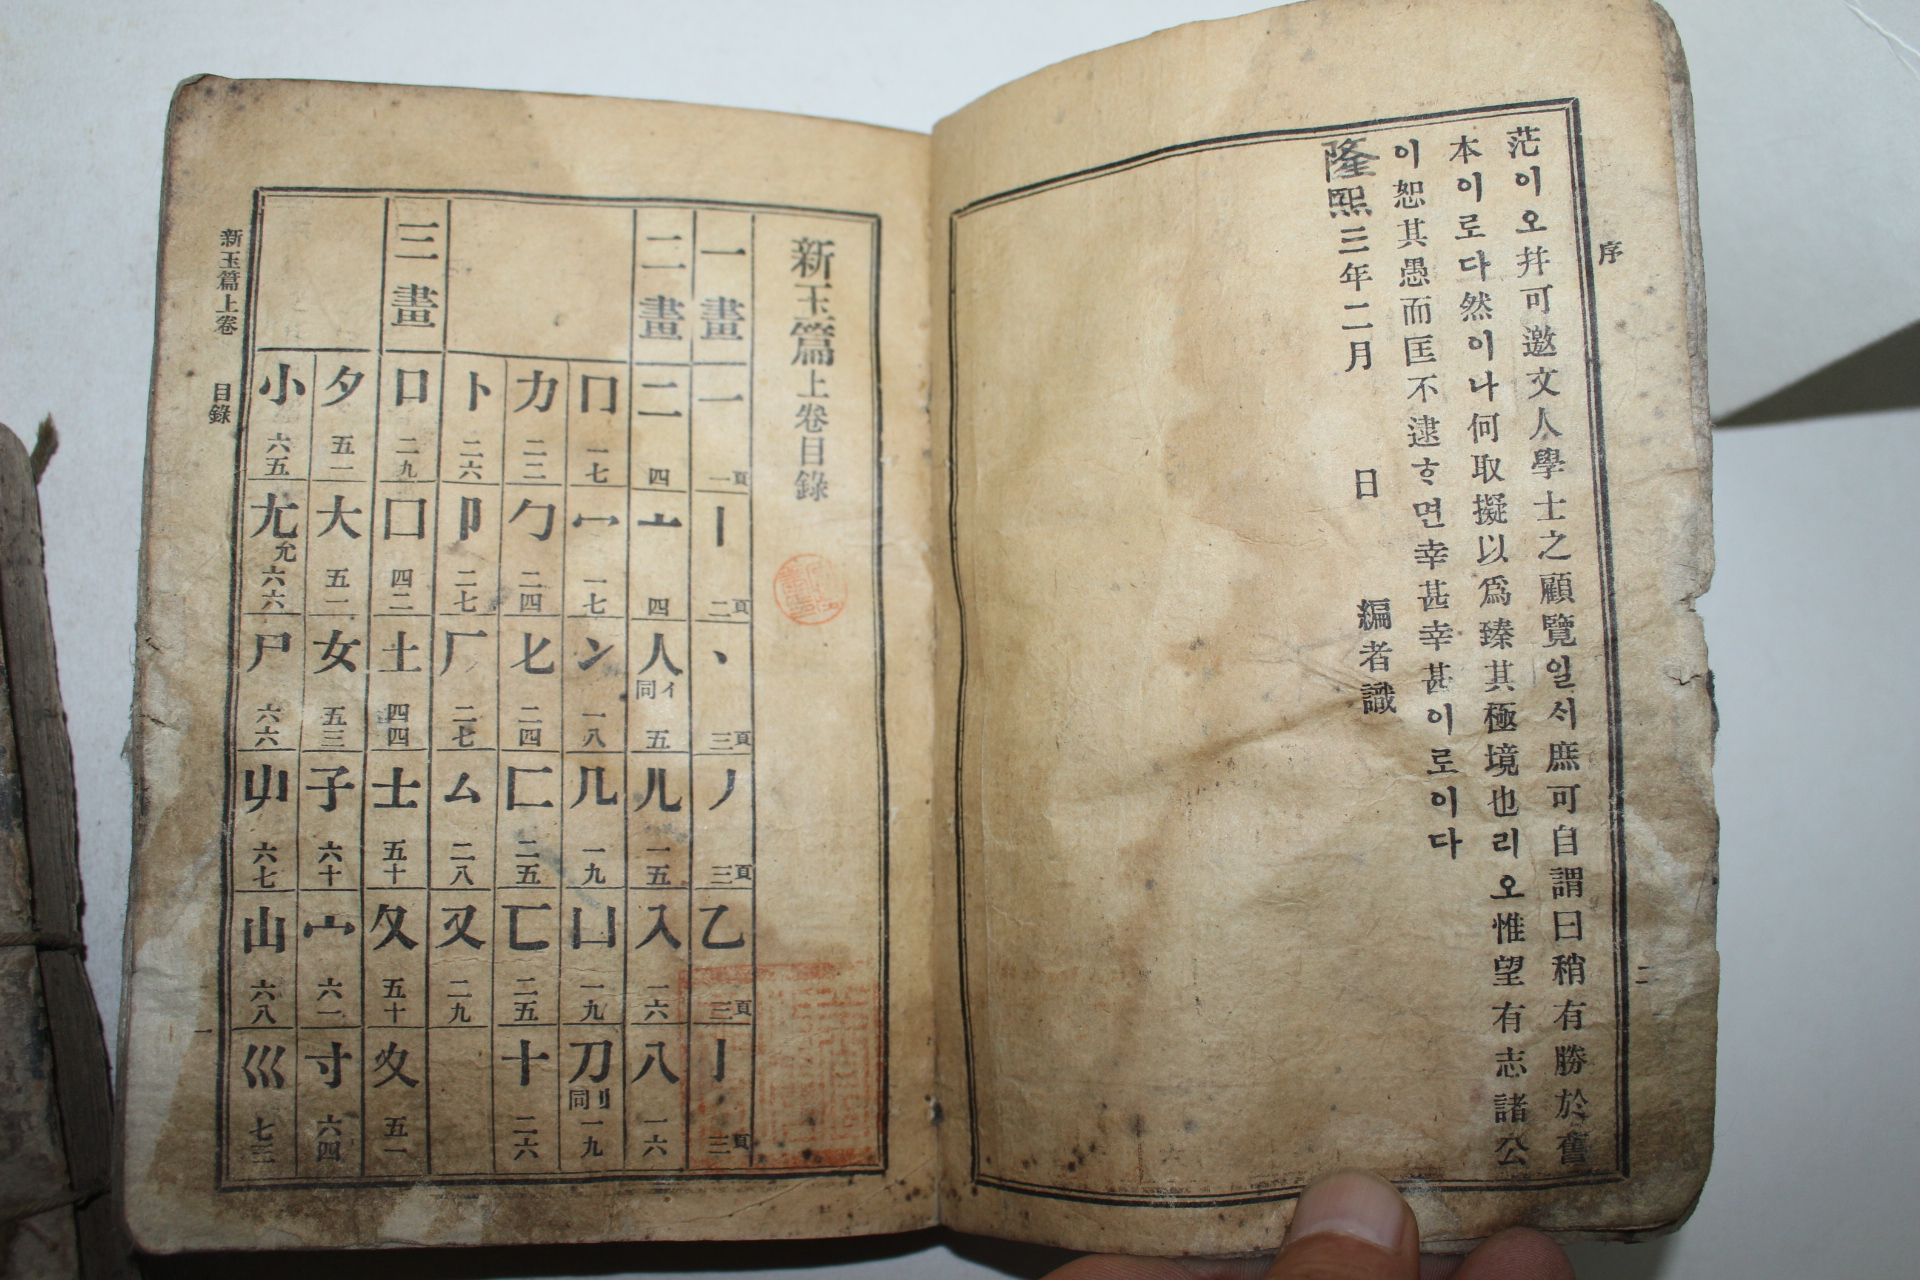 序
二
茫이오幷可邀文人學士之顧覽일ᄉᆡ庶可自謂曰稍有勝於舊
本이로다然이나何取擬以爲臻其極境也리오惟望有志諸公
이恕其愚而匡不逮ᄒᆞ면幸甚幸甚이로이다
隆熙三年二月 日 編者識
新玉篇上卷目錄
一畫 一 一頁 丨 二頁 丶 三頁 丿 三頁 乙 三頁 亅 三頁
二畫 二 四 亠 四 人 亻同 五 儿 一五 入 一六 八 一六
冂 一七 冖 一七 冫 一八 几 一九 凵 一九 刀 刂同 一九
力 二二 勹 二四 匕 二四 匚 二五 匸 二五 十 二六
卜 二六 卩 二七 厂 二七 厶 二八 又 二九
三畫 口 二九 囗 四二 土 四四 士 五十 夂 五十 夊 五一
夕 五一 大 五二 女 五三 子 六十 宀 六一 寸 六四
小 六五 尢 允 六六 尸 六六 屮 六七 山 六八 巛 七三
新玉篇上卷 目錄
一